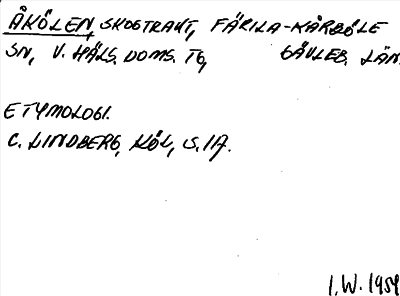 ÅKÖLEN, SKOGTRAKT, FÄRILA-KÅRBÖLE
SN, V. HÄLS. DOMS. TG, GÄVLEB. LÄN.
ETYMOLOGI.
C. LINDBERG, KÖL, S. 1A.
I.W. 1959